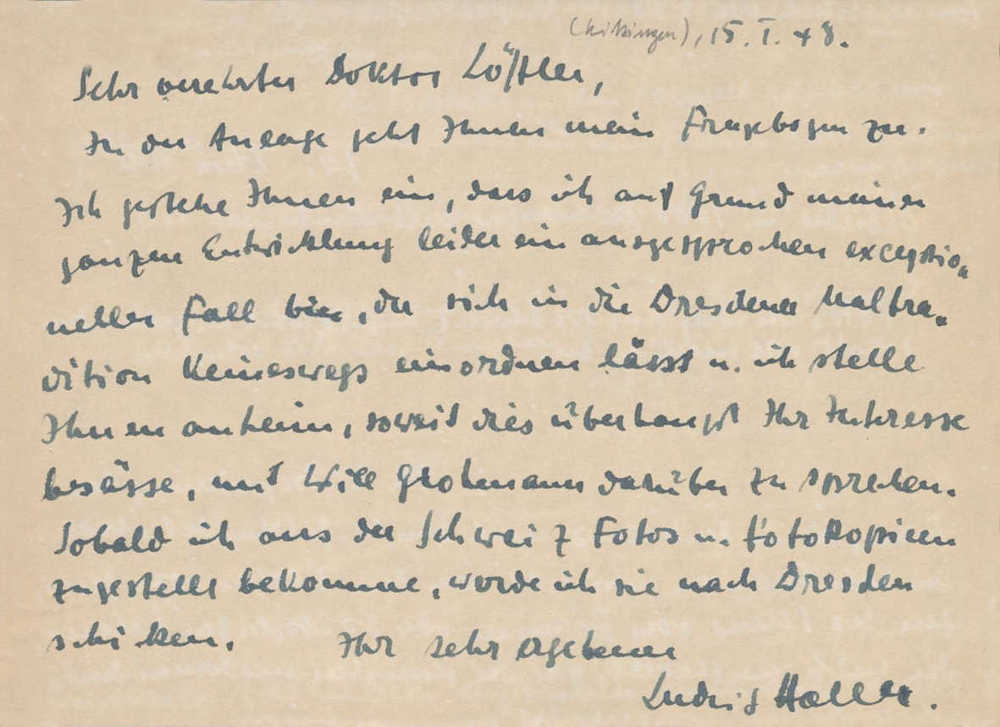 (Kitzingen), 15. I. 48.
Sehr verehrter Doktor Löffler,
In der Anlage geht Ihnen mein Fragebogen zu.
Ich gestehe Ihnen ein, dass ich auf Grund meiner
ganzen Entwicklung leider ein ausgesprochen exceptio-
neller Fall bin, der sich in die Dresdener Maltra-
dition Keineswegs einordnen lässt u. ich stelle
Ihnen anheim, soweit dies überhaupt Ihr Interesse
besässe, mit Will Grohmann darüber zu sprechen.
Sobald ich aus der Schweiz Fotos u. Fotokopieen
zugestellt bekomme, werde ich sie nach Dresden
schicken. Ihr sehr ergebener
Ludwig